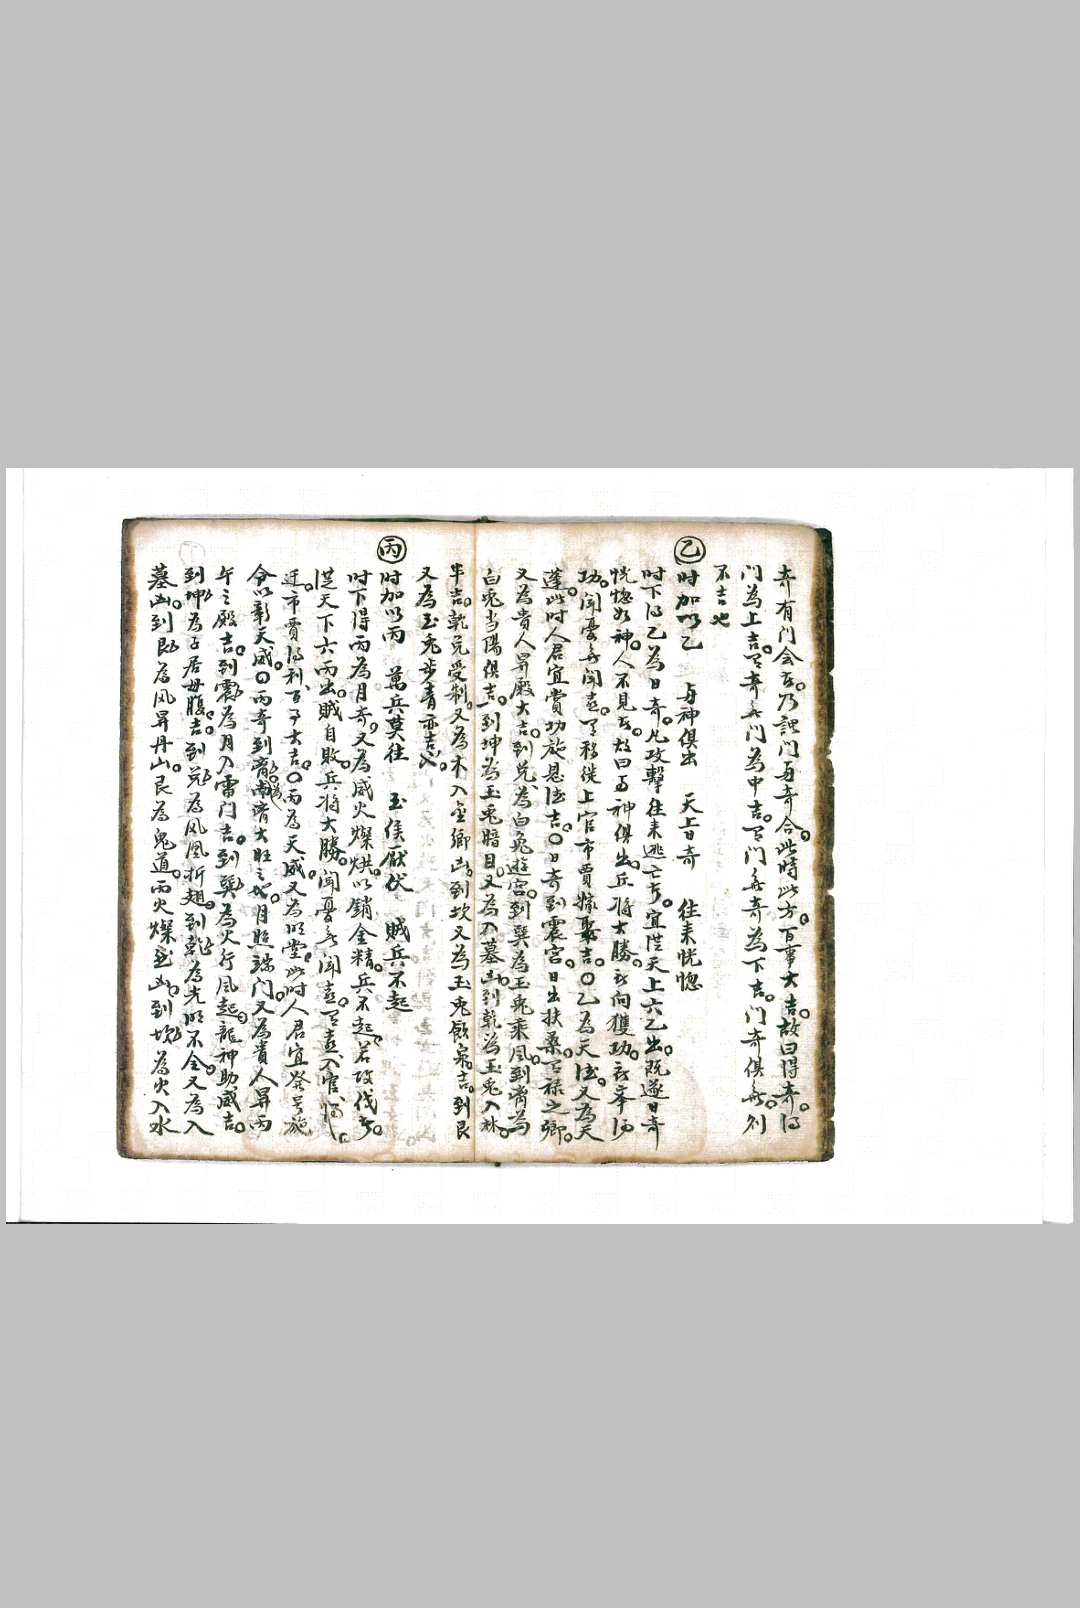 奇有门会吉。乃謂门与奇合。此時此方。百事大吉。故曰得奇。得
门為上吉。有奇無门為中吉。有门無奇為下吉。门奇俱無。则
不吉也
乙 时加以乙 与神俱出 天上日奇 往来恍惚
时下得乙為日奇。凡攻擊往来逃亡等。宜從天上六乙出。既逐日奇
恍惚如神。人不見吉。故曰与神俱出。兵将大勝。所向獲功。所奉得
功。闻憂無闻喜。有移徙上官市賈嫁娶吉。〇乙為天德。又為天
蓬。此时人君宜賞功施恩德吉。〇日奇到震宫。日出扶桑。有禄之鄉。
又為貴人昇殿大吉。到兑為白兔遊宫。到巽為玉兔乘風。到离為
白兔当陽俱吉。到坤為玉兔暗目。又為入墓凶。到乾為玉兔入林。
半吉。乾兑受制。又為木入金鄉凶。到坎又為玉兔飲泉。吉。到艮
又為玉兔步青亦吉。
丙 时加以丙 萬兵莫往 玉侯厭伏 賊兵不起
时下得丙為月奇。又為威火燦烘。以銷金精。兵不起。若攻伐等。
從天下六丙出。賊自敗。兵将大勝。闻憂無闻喜。有喜。入官得
迁。市賈得利百事大吉。〇丙為天威。又為明堂。此时人君宜發号施
令以彰天威。〇丙奇到离南。為大旺之地。月照端门。又為貴人昇丙
午之殿吉。到震為月入雷门吉。到巽為火行風起龍神助威吉。
到坤為子居母腹。吉。到兑為风凰折翅。到乾為光明不全。又為入
墓凶。到艮為风昇丹山。艮為鬼道。丙火燦至凶。到坎為火入水